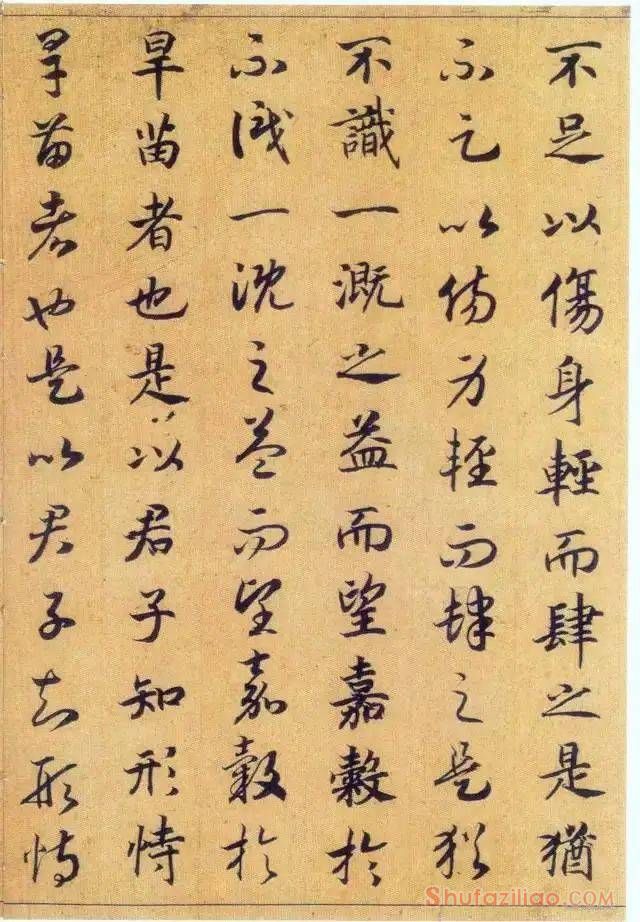 不足以傷身輕而肆之是猶
不足以傷身輕而肆之是猶
不識一溉之益而望嘉穀於
不識一溉之益而望嘉穀於
旱苗者也是以君子知形恃
旱苗者也是以君子知形恃
Shufaziliao.com